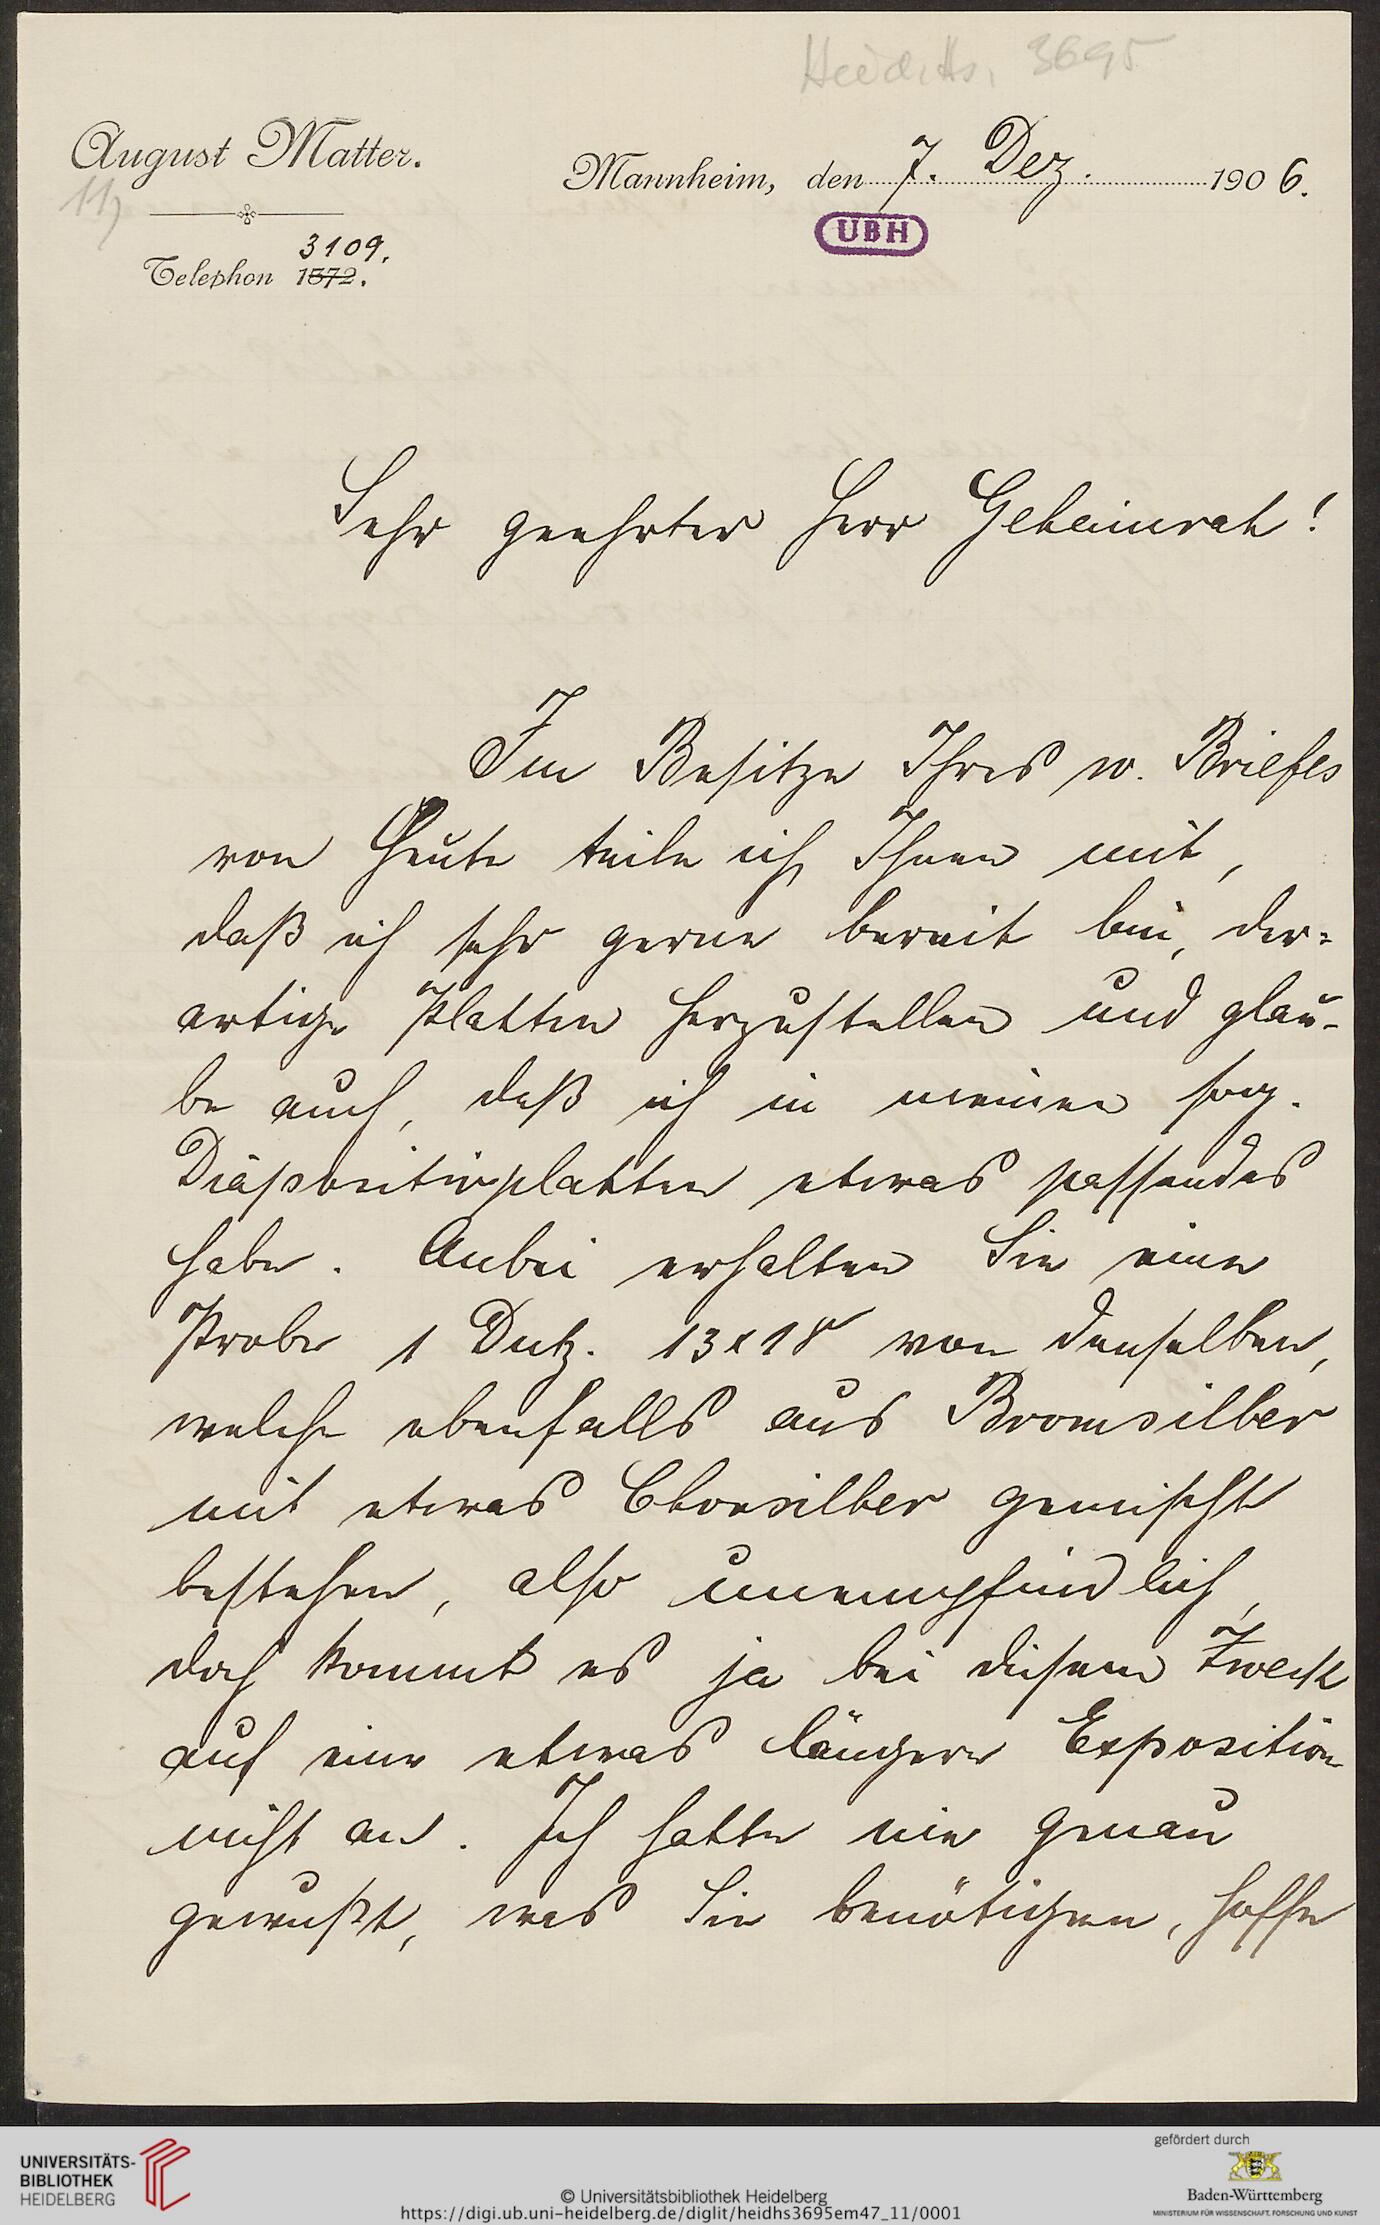 Heid. Hs. 3695
August Matter.
Mannheim, den 7. Dez. 1906.
11)
UBH
3109.
Telephon 1572.
Sehr geehrter Herr Geheimrat!
Im Besitze Ihres w. Briefes
von Heute teile ich Ihnen mit,
daß ich sehr gerne bereit bin, der=
artige Platten herzustellen und glau-
be auch, daß ich in meinen sog.
Diapositivplatten etwas passendes
habe. Anbei erhalten Sie eine
Probe 1 Dutz. 13x18 von denselben,
welche ebenfalls aus Bromsilber
mit etwas Chlorsilber gemischt
bestehen, also unempfindlich,
doch kommt es ja bei diesem Zweck
auf eine etwas längere Exposition
nicht an. Ich hatte nie genau
gewußt, was Sie benötigen, hoffe
UNIVERSITÄTS-
BIBLIOTHEK
HEIDELBERG
© Universitätsbibliothek Heidelberg
https://digi.ub.uni-heidelberg.de/diglit/heidhs3695em47_11/0001
gefördert durch
Baden-Württemberg
MINISTERIUM FÜR WISSENSCHAFT, FORSCHUNG UND KUNST